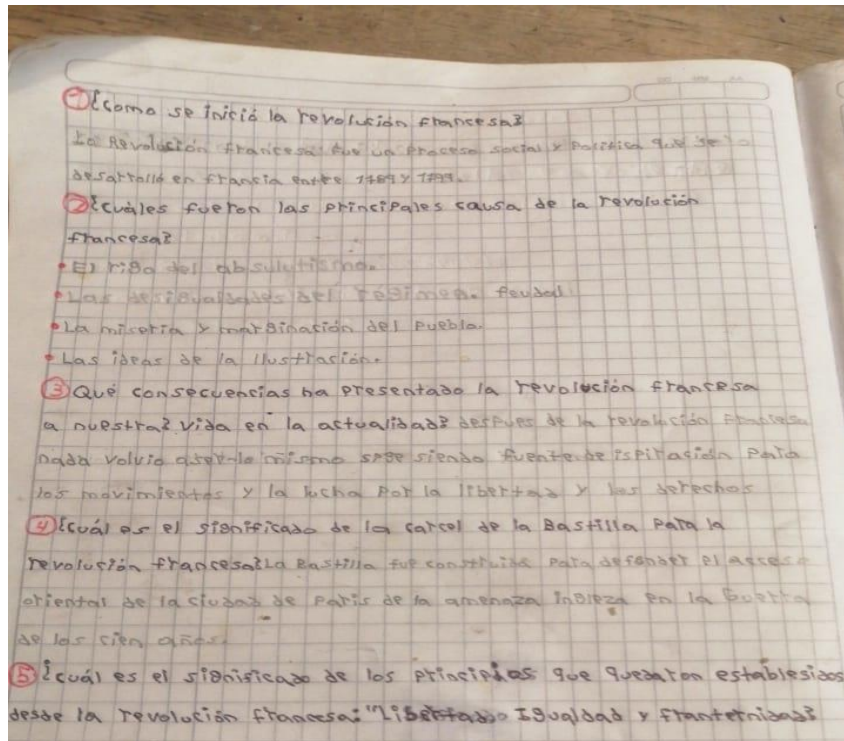 ① ¿como se inició la revolución francesa?
La Revolución francesa fue un proceso social y política que se
desarrolló en francia entre 1789 y 1799.
② ¿cuáles fueron las principales causa de la revolución
francesa?
• El rigo del absulutismo.
• Las desigualdades del régimen. feudal
• La miseria y marginación del puebla.
• Las ideas de la Ilustración.
③ Qué consecuencias ha presentado la revolución francesa
a nuestra? vida en la actualidad? despues de la revolución francesa
nada volvio aser lo mismo siendo fuente de ispiración para
los movimientos y la lucha por la libertad y los derechos
④ ¿cuál es el significado de la carcel de la Bastilla para la
revolución francesa? La Bastilla fue construida para defender el acceso
oriental de la ciudad de Paris de la amenaza ingleza en la Guerra
de los cien años.
⑤ ¿cuál es el signisicado de los principios que quedaron establesidos
desde la revolución francesa: "Libertad Igualdad y franternidad?